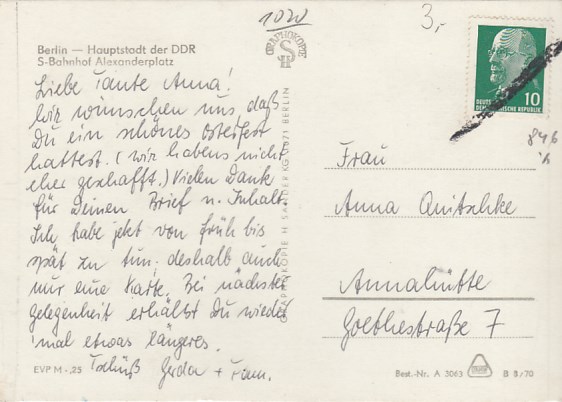 1020
3,-
Berlin — Hauptstadt der DDR
S-Bahnhof Alexanderplatz
GRAPHOKOPIE
SH
DEUTSCHE
DEMOKRATISCHE REPUBLIK
10
846
Liebe Tante Anna!
Wir wünschen uns daß
Du ein schönes Osterfest
hattest. (Wir habens nicht
eher geschafft.) Vielen Dank
für Deinen Brief u. Inhalt.
Ich habe jetzt von früh bis
spät zu tun. deshalb auch
nur eine Karte. Bei nächster
gelegenheit erhältst Du wieder
'mal etwas längeres.
Tschüß Gerda +
GRAPHOKOPIE H SANDER KG 1071 BERLIN
Frau
Anna Quitschke
Annahütte
Goethestraße 7
EVP M -,25
Best.-Nr. A 3063
B 8/70